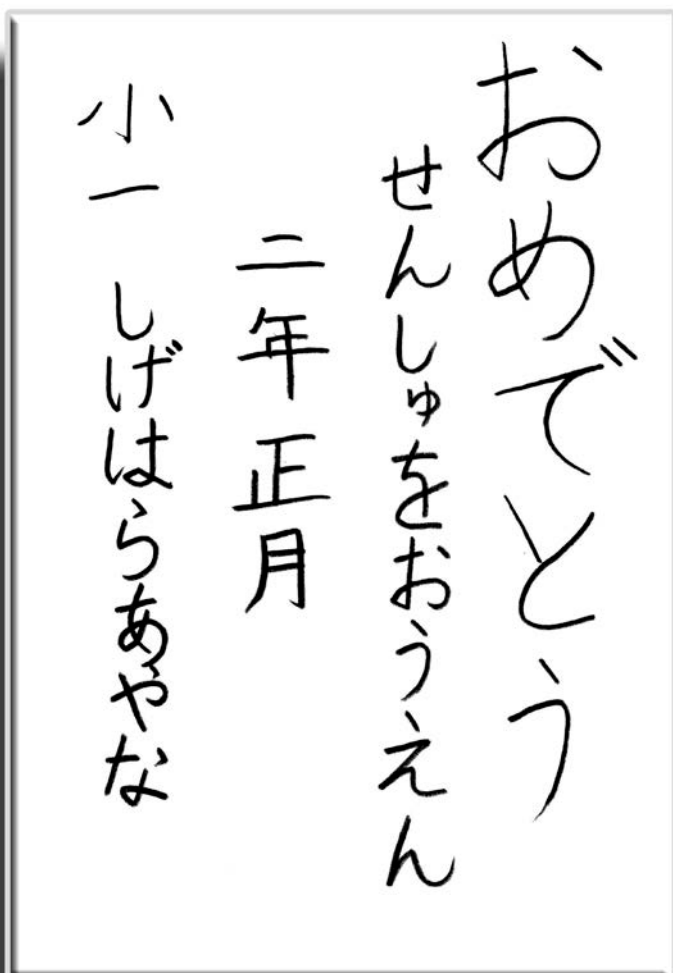 おめでとう
せんしゅをおうえん
二年正月
小一 しげはらあやな